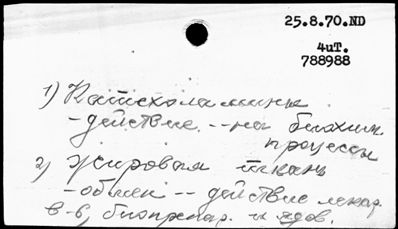 25.8.70.ND
4uT.
788988
1) Катехоламины
-действие -- на биохим.
процессы
2) Жировая ткань
-обмен -- действие лекар.
в-в, биопрепар. и ядов.